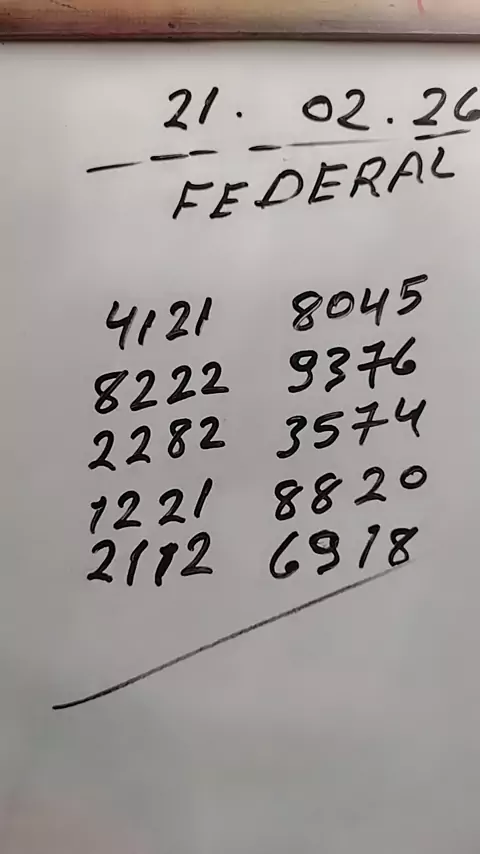 21. 02.26
FEDERAL
4121 8045
8222 9376
2282 3574
1221 8820
2112 6918